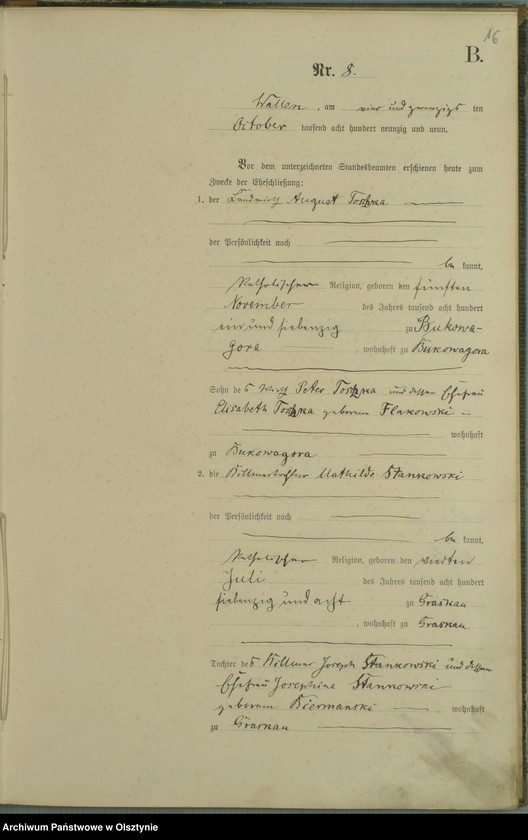 16
B.
Nr. 8.
Wallen, am vier und zwanzigsten
October tausend acht hundert neunzig und neun.
Vor dem unterzeichneten Standesbeamten erschienen heute zum
Zwecke der Eheschließung:
1. der Landwirth August Toschka
der Persönlichkeit nach
be kannt,
katholischer Religion, geboren den fünften
November des Jahres tausend acht hundert
ein und siebenzig zu Bukowa-
gora, wohnhaft zu Bukowagora
Sohn des Wirth Peter Toschka und dessen Ehefrau
Elisabeth Toschka geborene Flakowski
wohnhaft
zu Bukowagora
2. die Mathilde Stankowski
der Persönlichkeit nach
be kannt,
katholischer Religion, geboren den vierten
Juli des Jahres tausend acht hundert
siebenzig und acht zu Graskau
, wohnhaft zu Graskau
Tochter des Joseph Stankowski und dessen
Ehefrau Josephine Stankowski
geborene Biermanski wohnhaft
zu Graskau
Archiwum Państwowe w Olsztynie